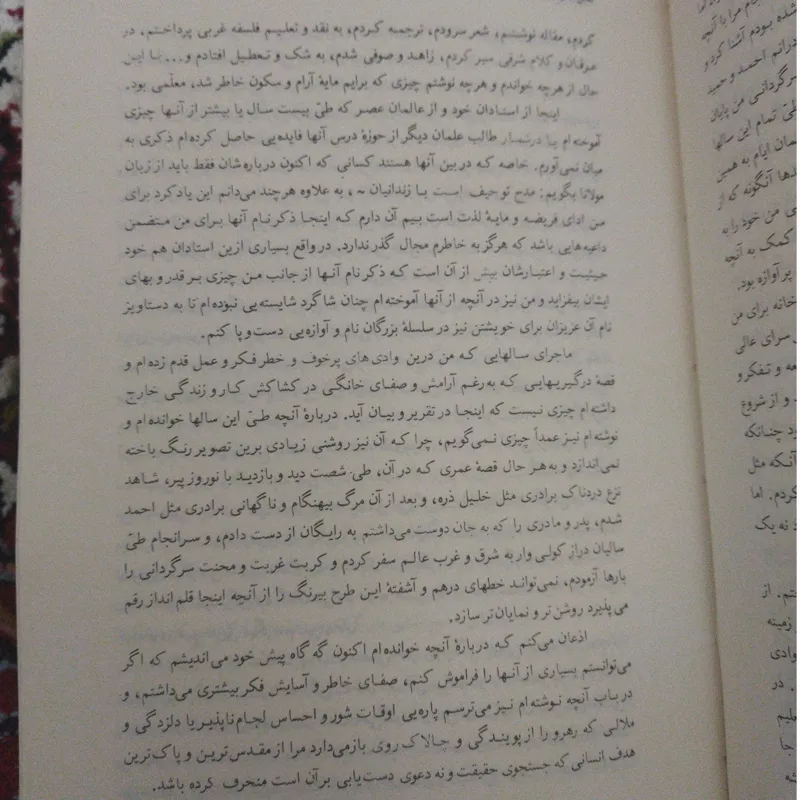 کردم، مقاله نوشتم، شعر سرودم، ترجمه کردم، به نقد و تعلیم فلسفه غربی پرداختم، در
عرفان و کلام شرقی سیر کردم، زاهد و صوفی شدم، به شک و تعطیل افتادم و... با این
حال از هرچه خواندم و هرچه نوشتم چیزی که برایم مایهٔ آرام و سکون خاطر شد، معلمی بود.
اینجا از استادان خود و از عالمان عصر که طیّ بیست سال یا بیشتر از آنها چیزی
آموخته‌ام یا در شمار طالب علمان دیگر از حوزهٔ درس آنها فایده‌یی حاصل کرده‌ام ذکری به
میان نمی‌آورم. خاصه که در بین آنها هستند کسانی که اکنون درباره‌شان فقط باید از زبان
مولانا بگویم: مدح تو حیف است با زندانیان ~، به علاوه هرچند می‌دانم این یادکرد برای
من ادای فریضه و مایهٔ لذت است بیم آن دارم که اینجا ذکر نام آنها برای من متضمن
داعیه‌هایی باشد که هرگز به خاطرم مجال گذر ندارد. در واقع بسیاری ازین استادان هم خود
حیثیت و اعتبارشان بیش از آن است که ذکر نام آنها از جانب من چیزی بر قدر و بهای
ایشان بیفزاید و من نیز در آنچه از آنها آموخته‌ام چنان شاگرد شایسته‌یی نبوده‌ام تا به دستاویز
نام آن عزیزان برای خویشتن نیز در سلسلهٔ بزرگان نام و آوازه‌یی دست‌وپا کنم.
ماجرای سالهایی که من درین وادی‌های پرخوف و خطر فکر و عمل قدم زده‌ام و
قصهٔ درگیریهایی که به رغم آرامش و صفای خانگی در کشاکش کار و زندگی خارج
داشته‌ام چیزی نیست که اینجا در تقریر و بیان آید. دربارهٔ آنچه طیّ این سالها خوانده‌ام و
نوشته‌ام نیز عمداً چیزی نمی‌گویم، چرا که آن نیز روشنی زیادی برین تصویر رنگ باخته
نمی‌اندازد و به‌هر حال قصهٔ عمری که در آن، طی شصت دید و بازدید با نوروز پیر، شاهد
نزع دردناک برادری مثل خلیل ذره، و بعد از آن مرگ بیهنگام و ناگهانی برادری مثل احمد
شدم، پدر و مادری را که به جان دوست می‌داشتم به رایگان از دست دادم، و سرانجام طیّ
سالیان دراز کولی وار به شرق و غرب عالم سفر کردم و کربت غربت و محنت سرگردانی را
بارها آزمودم، نمی‌تواند خطهای درهم و آشفتهٔ این طرح بیرنگ را از آنچه اینجا قلم انداز رقم
می‌پذیرد روشن‌تر و نمایان‌تر سازد.
اذعان می‌کنم که دربارهٔ آنچه خوانده‌ام اکنون گه گاه پیش خود می‌اندیشم که اگر
می‌توانستم بسیاری از آنها را فراموش کنم، صفای خاطر و آسایش فکر بیشتری می‌داشتم، و
در باب آنچه نوشته‌ام نیز می‌ترسم پاره‌یی اوقات شور و احساس لجام ناپذیر یا دلزدگی و
ملالی که رهرو را از پویندگی و چالاک روی بازمی‌دارد مرا از مقدس‌ترین و پاک‌ترین
هدف انسانی که جستجوی حقیقت و نه دعوی دست‌یابی بر آن است منحرف کرده باشد.
مرا با آنچه
شده بودم آشنا کرد و
درانم احمد و حمید
سرگردانی من پایان
طیّ تمام این سالها
مان ایام به همین
آنگونه که از
ی من خود را به
کمک به آنچه
پر آوازه بود.
خانه برای من
سرای عالی
عه و تفکر و
و از شروع
د چنانکه
آنکه مثل
کردم. اما
د نه یک
تم. از
زمینه
وادی
. در
علیم
جا
شه